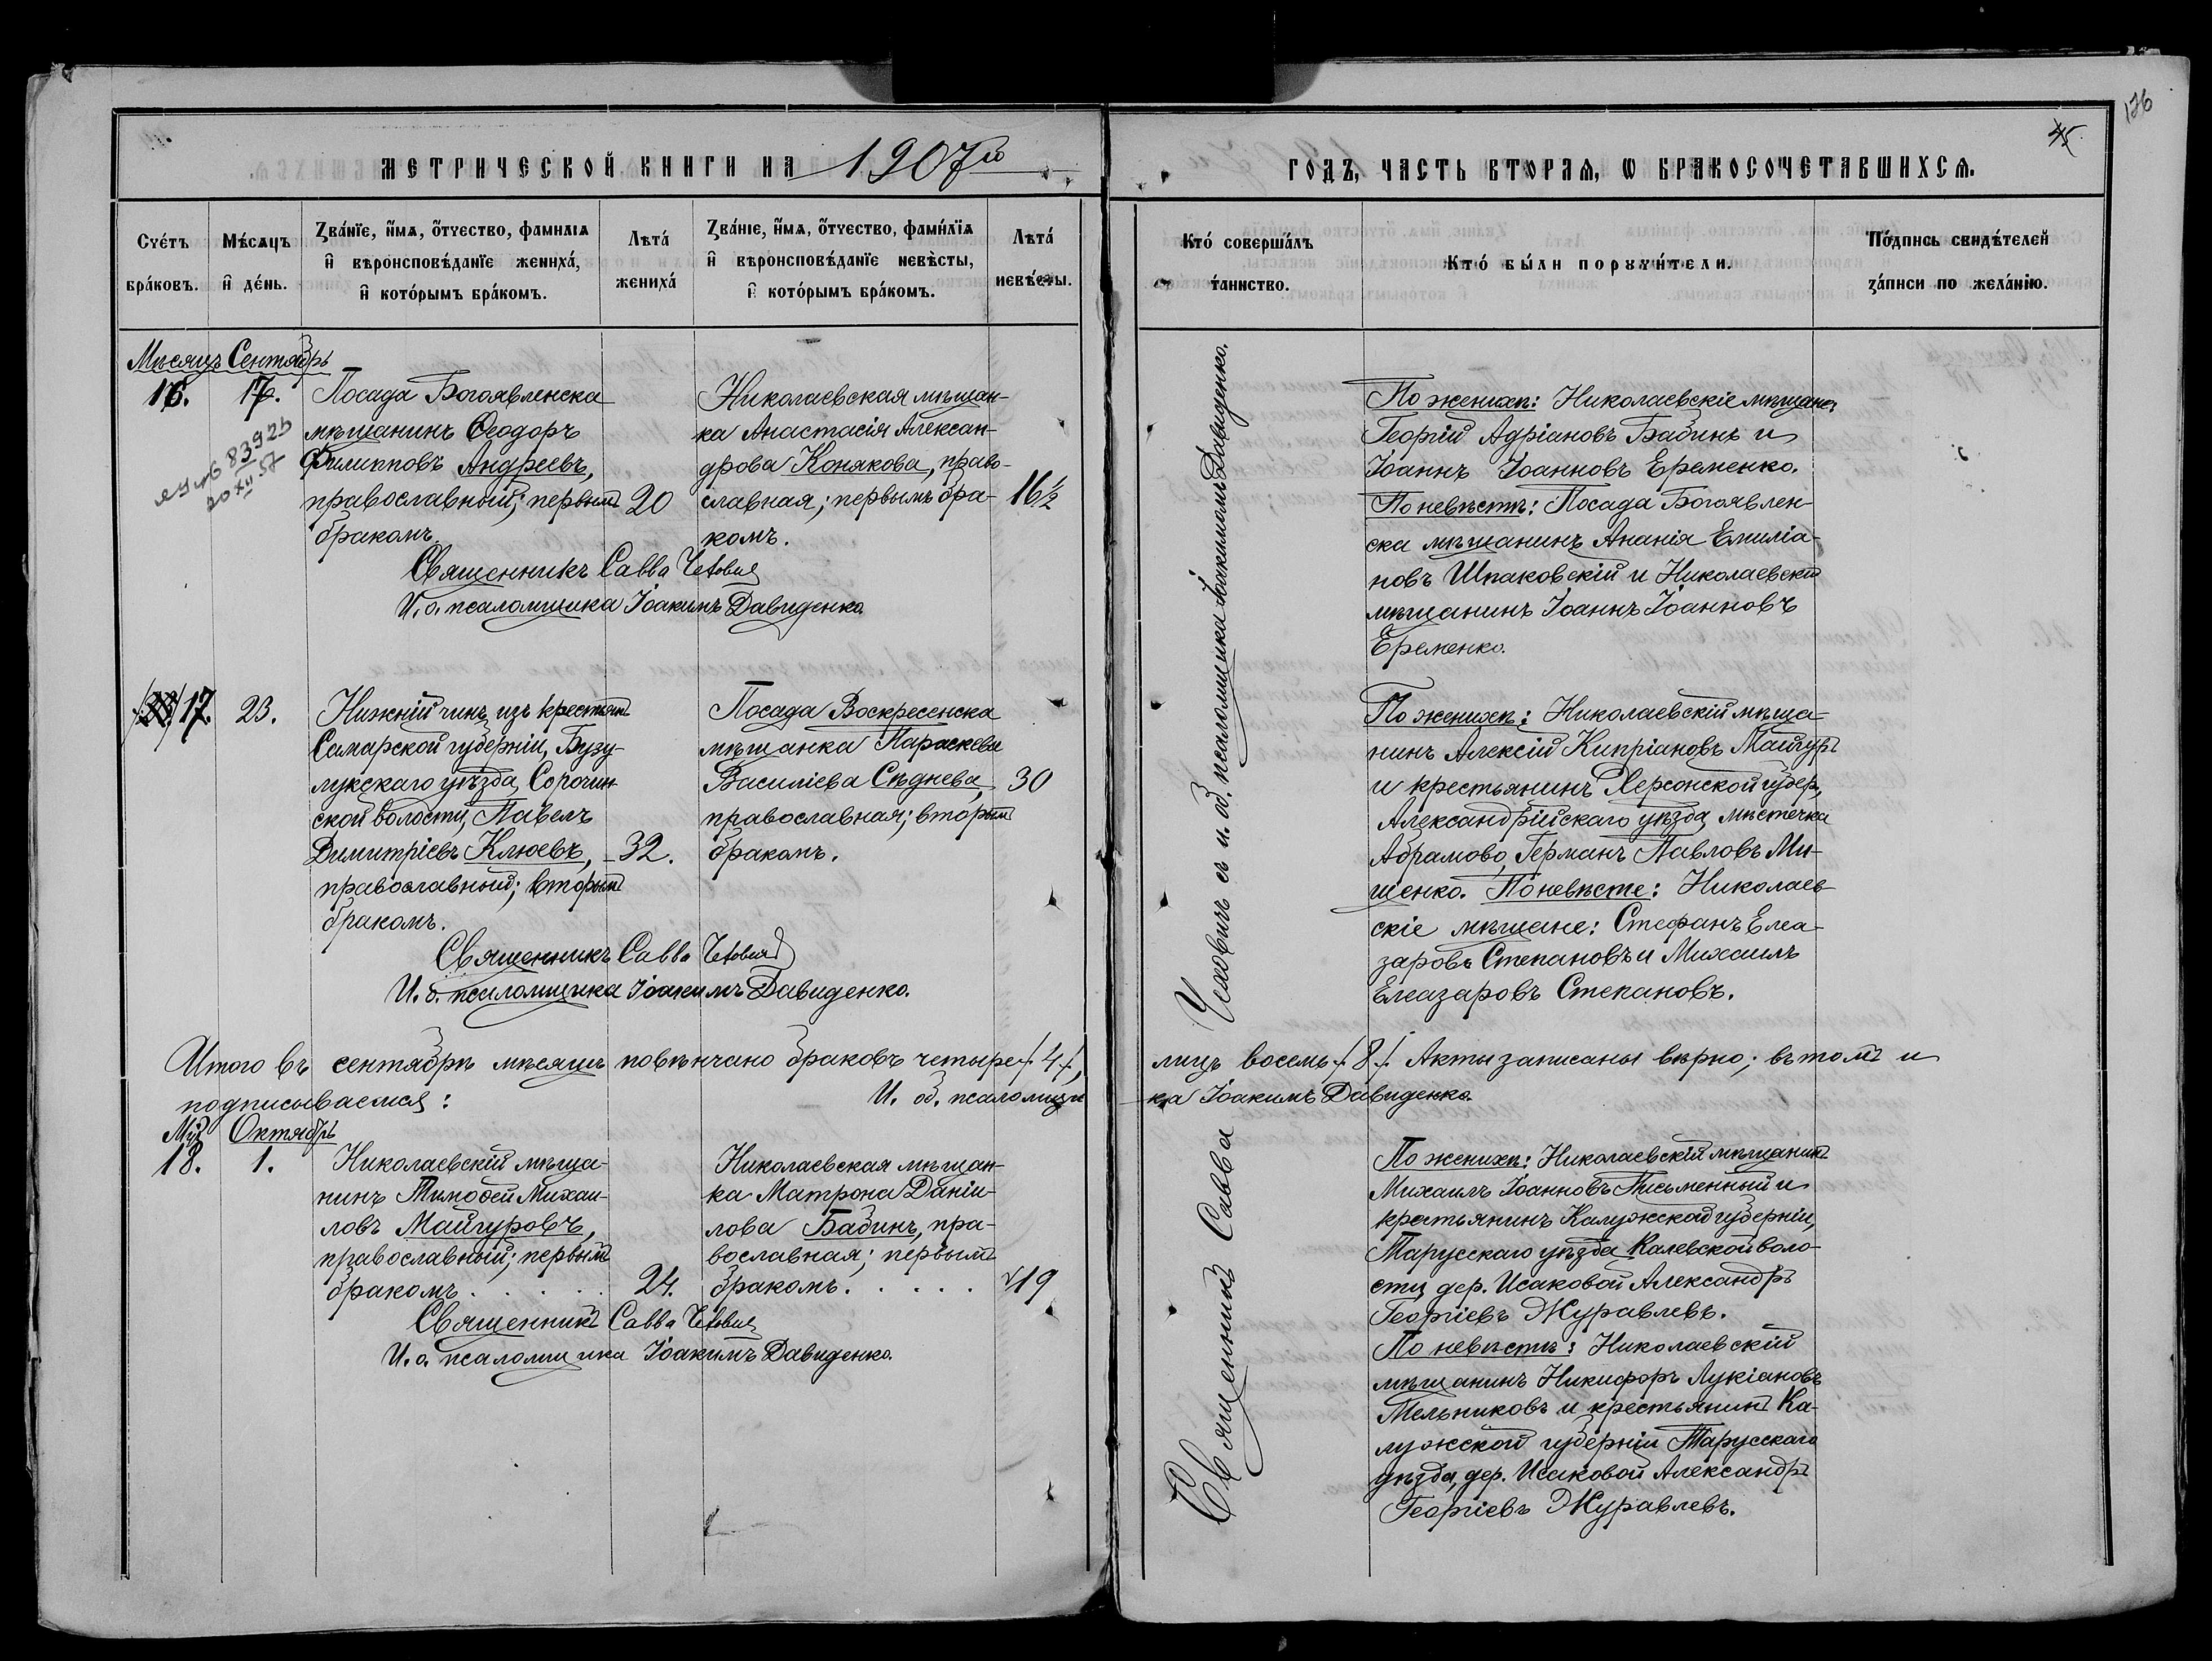 176
45.
МЕТРИЧЕСКОЙ КНИГИ НА 1907й
ГОДЪ, ЧАСТЬ ВТОРАѦ, Ѡ БРАКОСОЧЕТАВШИХСѦ.
Счётъ бра́ковъ.
Мѣ́сѧцъ и҆ де́нь.
Зва́нїе, и҆́мѧ, ѻ҆́тчество, фамилїѧ
и҆ вѣроисповѣ́данїе жениха́,
и҆ кото́рымъ бра́комъ.
Лѣта́
жениха́
Зва́нїе, и҆́мѧ, ѻ҆́тчество, фами́лїѧ
и҆ вѣроисповѣ́данїе невѣ́сты,
и҆ кото́рымъ бра́комъ.
Лѣта́
невѣ́сты.
Кто́ соверша́лъ
та́инство.
Кто́ бы́ли порꙋчи́тели.
По́дпись свидѣ́телей
за́писи по жела́нїю.
Мѣсяцъ Сентябрь
16. 17.
Посада Богоявленска
мѣщанинъ Ѳеодоръ
Филипповъ Андреевъ,
православный; первымъ
бракомъ.
20
Николаевская мѣщан-
ка Анастасія Алексан-
дрова Конякова, право-
славная; первымъ бра-
комъ.
16½
Священникъ Савва Чеховичъ
И. о. псаломщика Іоакимъ Давиденко.
По женихѣ: Николаевскіе мѣщане
Георгій Адріановъ Бабинъ и
Іоаннъ Іоанновъ Еременко.
По невѣстѣ: Посада Богоявлен-
ска мѣщанинъ Ананія Емиліа-
новъ Шпаковскій и Николаевскій
мѣщанинъ Іоаннъ Іоанновъ
Еременко.
17. 23.
Нижній чинъ изъ крестьянъ
Самарской губерніи, Бузу-
лукскаго уѣзда, Сорочин-
ской волости, Павелъ
Димитріевъ Клюевъ,
православный; вторымъ
бракомъ.
32.
Посада Воскресенска
мѣщанка Параскева
Василіева Сѣднева,
православная; вторымъ
бракомъ.
30
Священникъ Савва Чеховичъ
И. о. псаломщика Іоакимъ Давиденко.
По женихѣ: Николаевскій мѣща-
нинъ Алексій Кипріановъ Майгуръ
и крестьянинъ Херсонской губер.,
Александрійскаго уѣзда, мѣстечка
Абрамово, Германъ Павловъ Ми-
щенко. По невѣсте: Николаев-
скіе мѣщане: Стефанъ Елеа-
заровъ Степановъ и Михаилъ
Елеазаровъ Степановъ.
Итого въ сентябрѣ мѣсяцѣ повѣнчано браковъ четыре /4/, лицъ восемь /8/. Акты записаны вѣрно; въ томъ и
подписываемся: И. об. псаломщика Іоакимъ Давиденко.
Священникъ Савва Чеховичъ и и. об. псаломщика Іоакимъ Давиденко.
Мць Октябрь
18. 1.
Николаевскій мѣща-
нинъ Тимоѳей Михаи-
ловъ Майгуровъ,
православный; первымъ
бракомъ . . . . .
24.
Николаевская мѣщан-
ка Матрона Даніи-
лова Бабинъ, пра-
вославная; первымъ
бракомъ. . . . .
19
Священникъ Савва Чеховичъ
И. о. псаломщика Іоакимъ Давиденко.
По женихѣ: Николаевскій мѣщанинъ
Михаилъ Іоанновъ Письменный и
крестьянинъ Калужской губерніи,
Тарусскаго уѣзда Калевской воло-
сти, дер. Исаковой Александръ
Георгіевъ Журавлевъ.
По невѣстѣ: Николаевскій
мѣщанинъ Никифоръ Лукіановъ
Мельниковъ и крестьянинъ Ка-
лужской губерніи Тарусскаго
уѣзда, дер. Исаковой Александръ
Георгіевъ Журавлевъ.